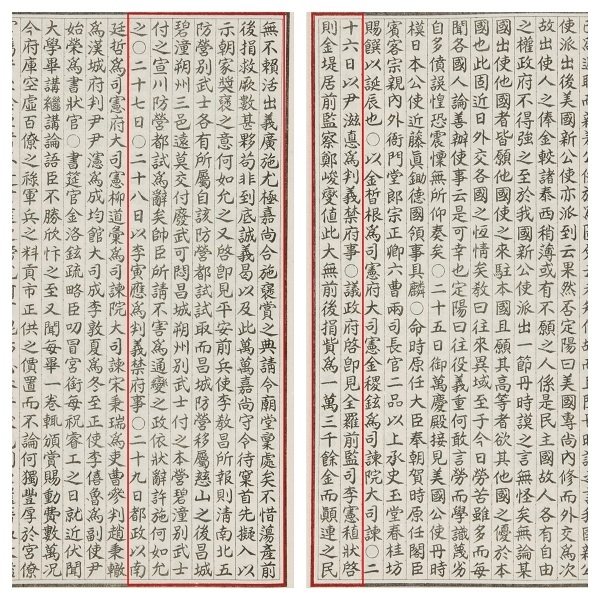 使派出後美國新公使亦派到云果然否定陽曰美國專尙內修而外交爲次
故出使人之俸金較諸泰西稍薄或有不願之人係是民主國故人各有自由
之權政府不得強之至於我國新公使派出一節丹時謨之言無怪矣無論某
國出使他國者皆願他國使之來駐本國且願其高等者欲其他國之優於本
國也此固近日外交各國之恆情矣敎曰往來異域至于今日勞苦雖多而每
聞各國人論善辦使事云是可幸也定陽曰往役義重何敢言勞而學識蔑劣
自多僨誤惶恐震慄無所仰奏矣○二十五日御萬慶殿接見美國公使丹時
模日本公使近藤眞鋤德國領事具麟○命時原任大臣奉朝賀時原任閣臣
賓客宗親內外衙門堂郞宗正卿六曹兩司長官二品以上承史玉堂春桂坊
賜饌以誕辰也○以金晳根爲司憲府大司憲金稷鉉爲司諫院大司諫○二
十六日以尹滋悳爲判義禁府事○議政府啓卽見全羅前監司李憲稙狀啓
則金堤居前監察鄭峻燮値此大無前後捐貲爲一萬三千餘金而顚連之民
無不賴活出義廣施尤極嘉尙合施褒賞之典請令廟堂稟處矣不惜蕩產前
後捐救厥數甚夥苟非到底誠義曷以及此萬萬嘉尙守令待窠首先擬入以
示朝家奬褒之意何如允之又啓卽見平安前兵使李敎昌所報則淸南北五
防營別武士各有所屬自該防營都試試取而昌城防營移屬慈山之後昌城
碧潼朔州三邑遠莫交付廢武可悶昌城朔州別武士付之本營碧潼別武士
付之宣川防營都試爲辭矣帥臣所請不害爲通變之政依狀辭許施何如允
之○二十七日○二十八日以李寅應爲判義禁府事○二十九日都政以南
廷哲爲司憲府大司憲柳道彙爲司諫院大司諫宋秉瑞爲吏曹參判趙秉轍
爲漢城府判尹尹瀗爲成均館大司成李敦夏爲冬至正使李僖魯爲副使尹
始榮爲書狀官○書筵官金洛鉉疏略臣叨冒宮銜每祝睿工之日就近伏聞
大學畢講繼講論語臣不勝欣忭之至又聞每畢一卷輒頒賞賜動費數萬況
今府庫空虛百僚之祿軍兵之料貢市正供之債置而不論何獨豐厚於宮僚